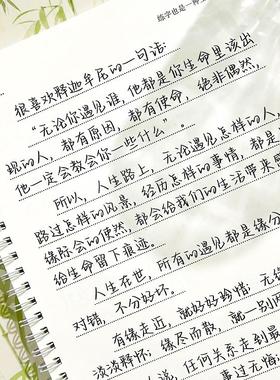 练字也是一种
很喜欢释迦牟尼的一句话:
“无论你遇见谁,他都是你生命里该出
现的人,都有原因,都有使命,绝非偶然,
他一定会教会你一些什么”。
所以,人生路上,无论遇见怎样的人,
路过怎样的风景,经历怎样的事情,都是
缘际会的使然,都会给我们的生活带来
给生命留下痕迹……
人生在世,所有的遇见都是缘分
对错,不分好坏。
有缘走近,就好好珍惜;无
淡淡释怀;缘尽而散,就一别两
人说,任何关系走到最
事过无悔